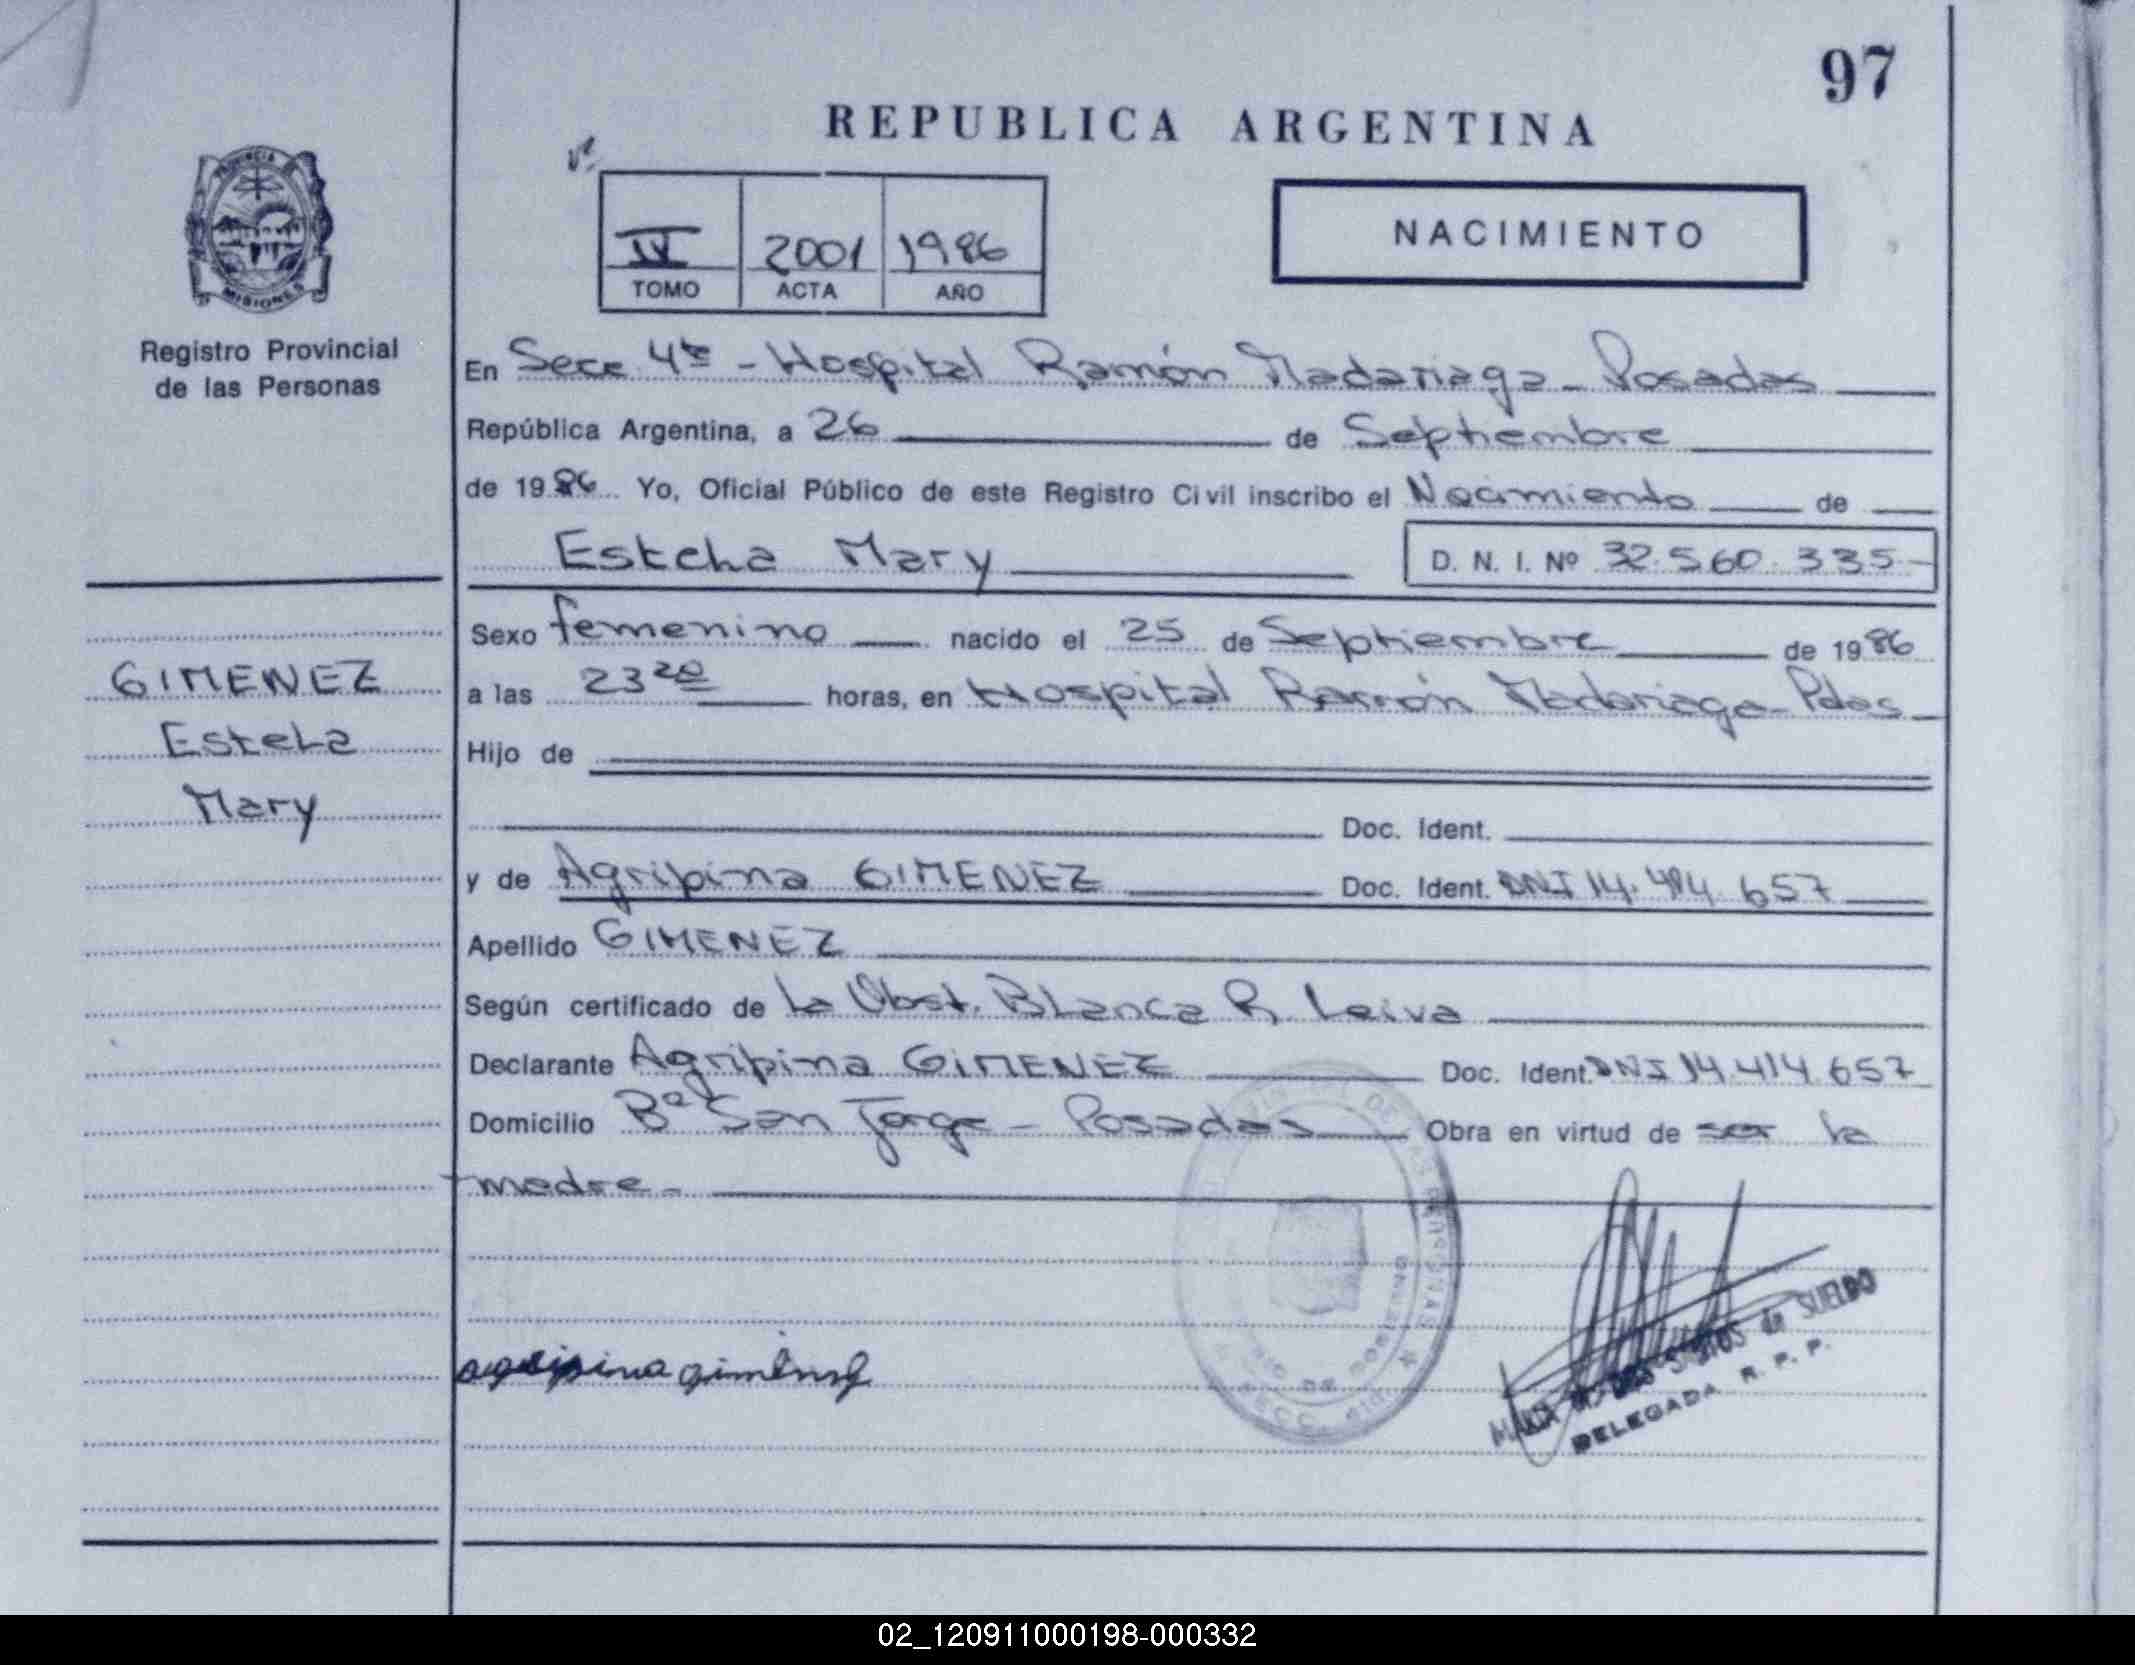 97
REPUBLICA ARGENTINA
PROVINCIA
MISIONES
Registro Provincial
de las Personas
IV 2001 1986
TOMO ACTA AÑO
NACIMIENTO
En Secc 4ta - Hospital Ramón Madariaga - Posadas
República Argentina, a 26 de Septiembre
de 1986 Yo, Oficial Público de este Registro Civil inscribo el Nacimiento de
Estela Mary D. N. I. Nº 32.560.335
GIMENEZ
Estela
Mary
Sexo femenino nacido el 25 de Septiembre de 1986
a las 23 20 horas, en Hospital Ramón Madariaga - Pdas
Hijo de
Doc. Ident.
y de Agripina GIMENEZ Doc. Ident. DNI 14.414.657
Apellido GIMENEZ
Según certificado de la Obst. Blanca R. Leiva
Declarante Agripina GIMENEZ Doc. Ident. DNI 14.414.657
Domicilio Bº San Jorge - Posadas Obra en virtud de ser la
madre.
agripina gimenez
de SUELDO
DELEGADA R. P. P.
02_120911000198-000332